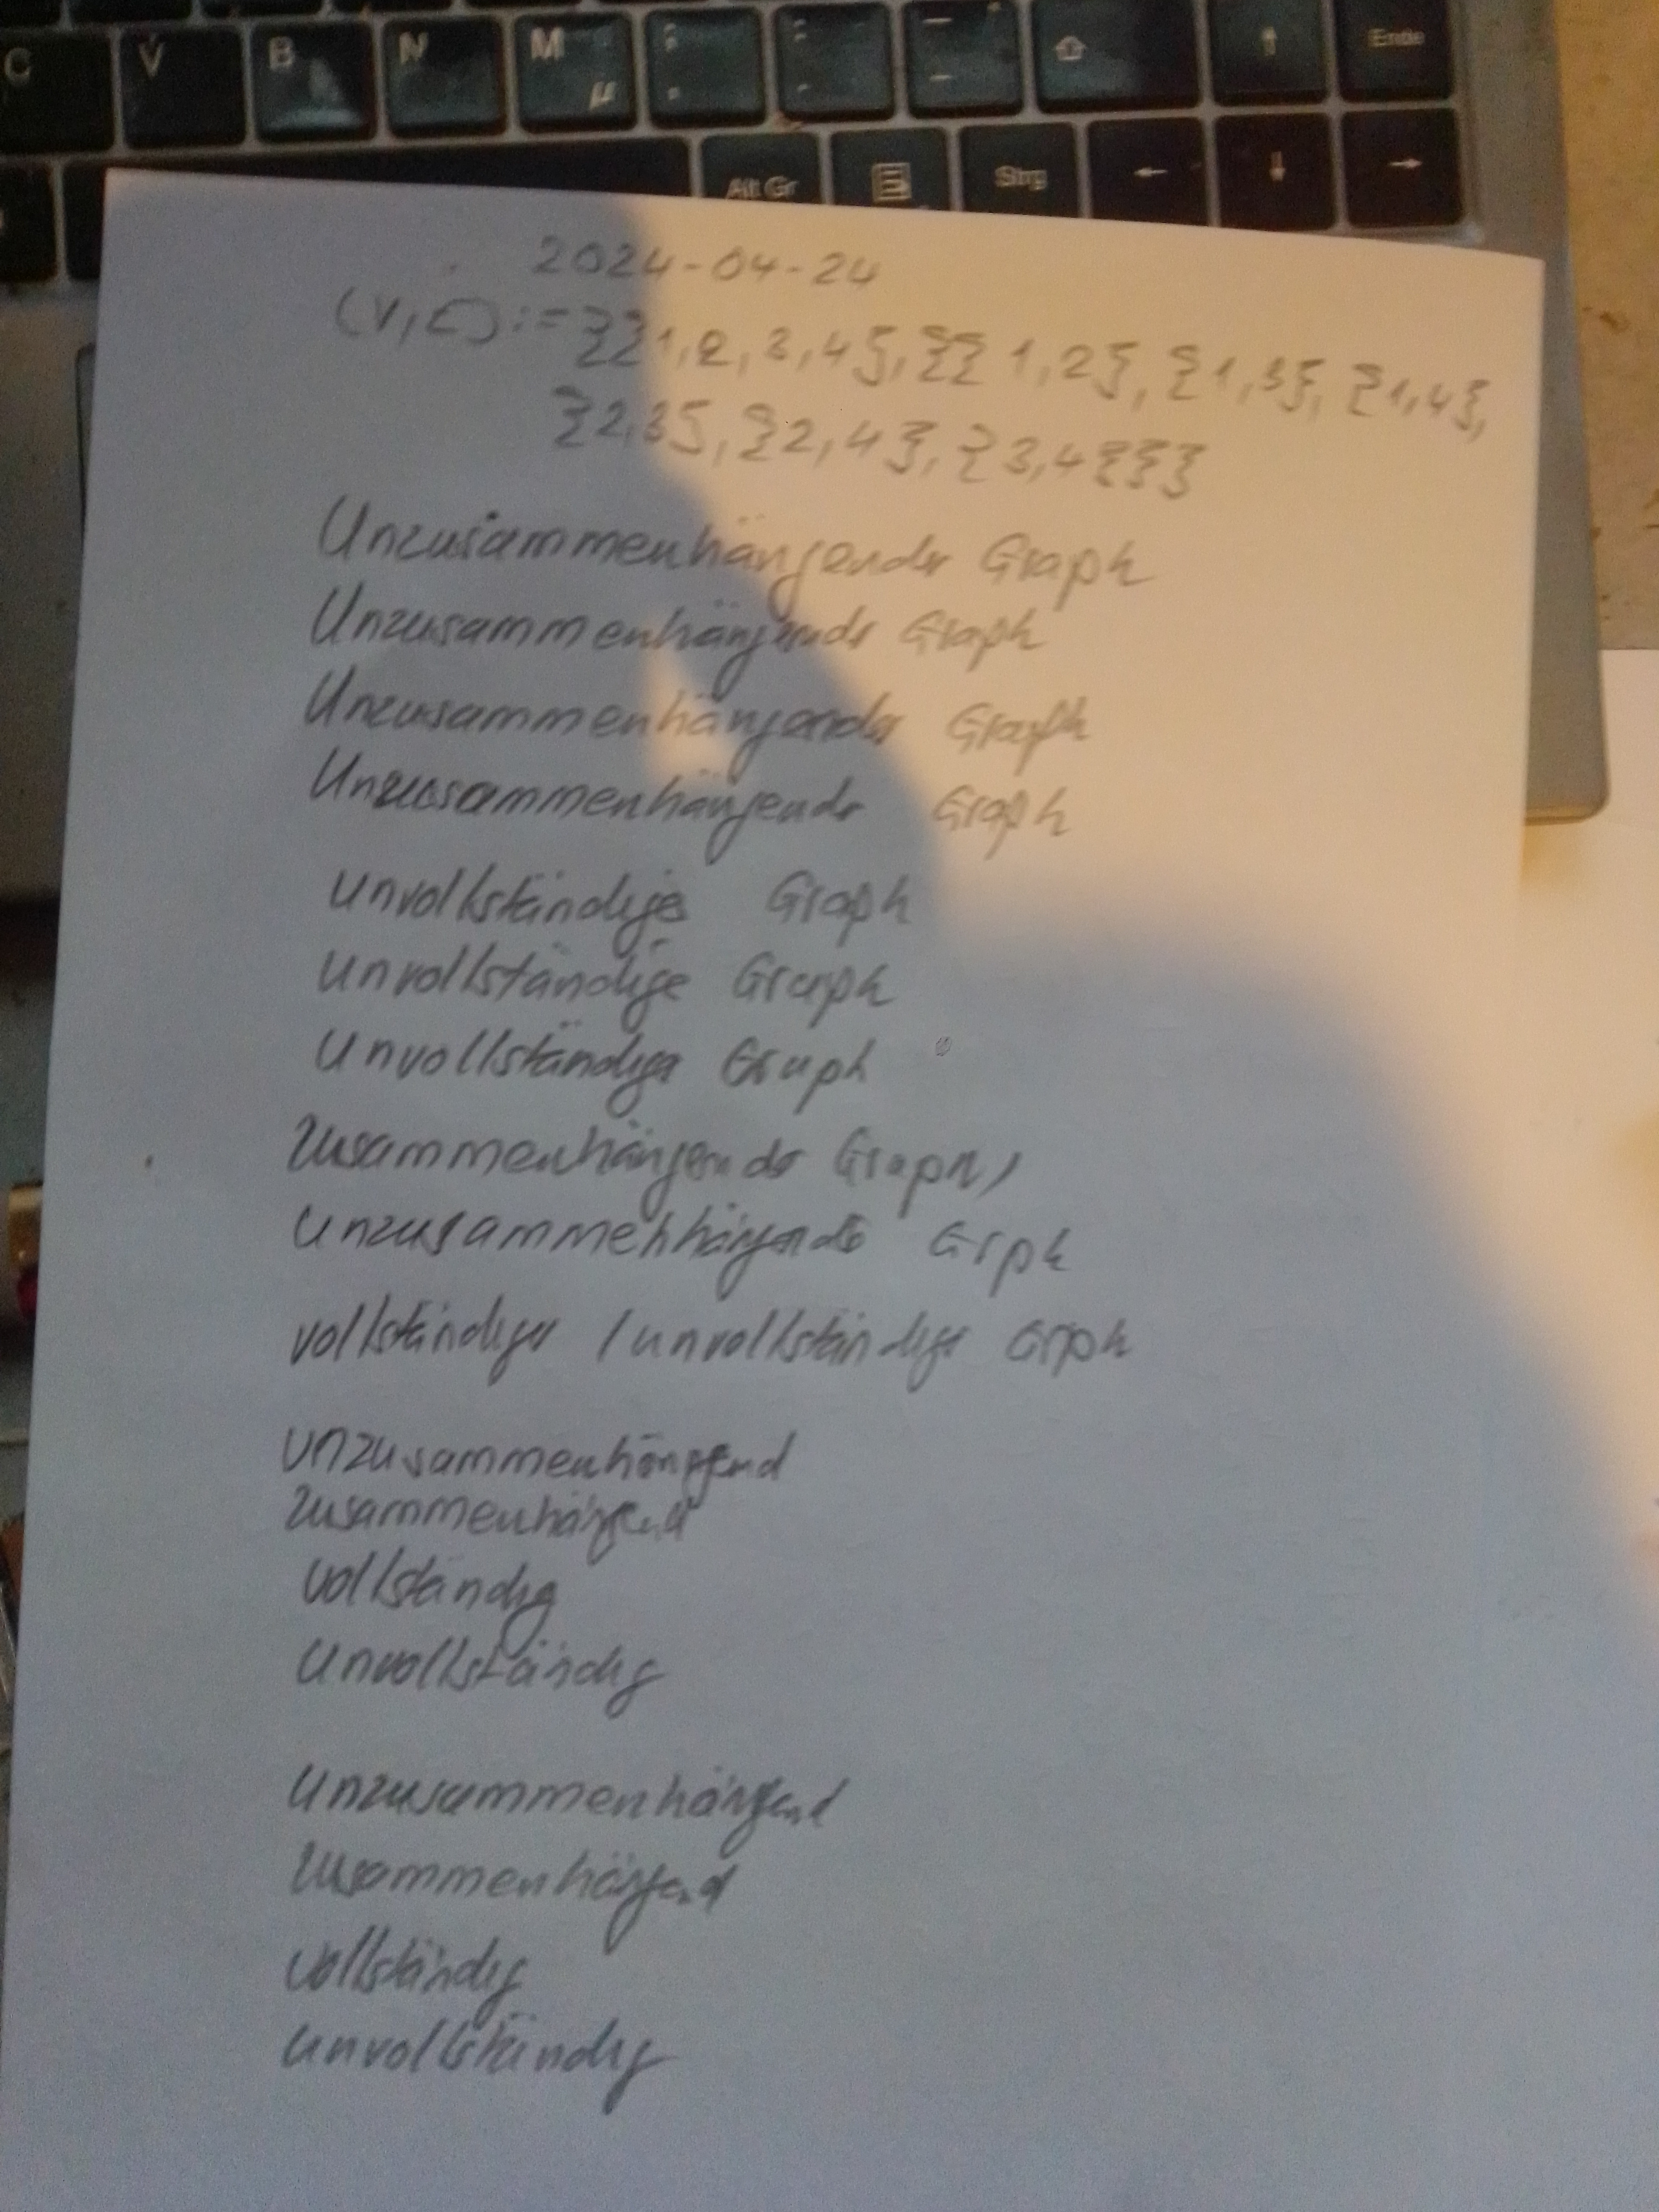 C V B N M µ ; , : . _ - ⇧ ↑ Ende
Alt Gr Strg ← ↓ →
2024-04-24
(V,E):={{1,2,3,4},{{1,2},{1,3},{1,4},
{2,3},{2,4},{3,4}}}
Unzusammenhängender Graph
Unzusammenhängender Graph
Unzusammenhängender Graph
Unzusammenhängender Graph
Unvollständiger Graph
Unvollständige Graph
Unvollständiger Graph
Zusammenhängender Graph,
Unzusammenhängender Grph
vollständiger / unvollständiger Grph
unzusammenhängend
zusammenhängend
vollständig
unvollständig
unzusammenhängend
zusammenhängend
vollständig
unvollständig